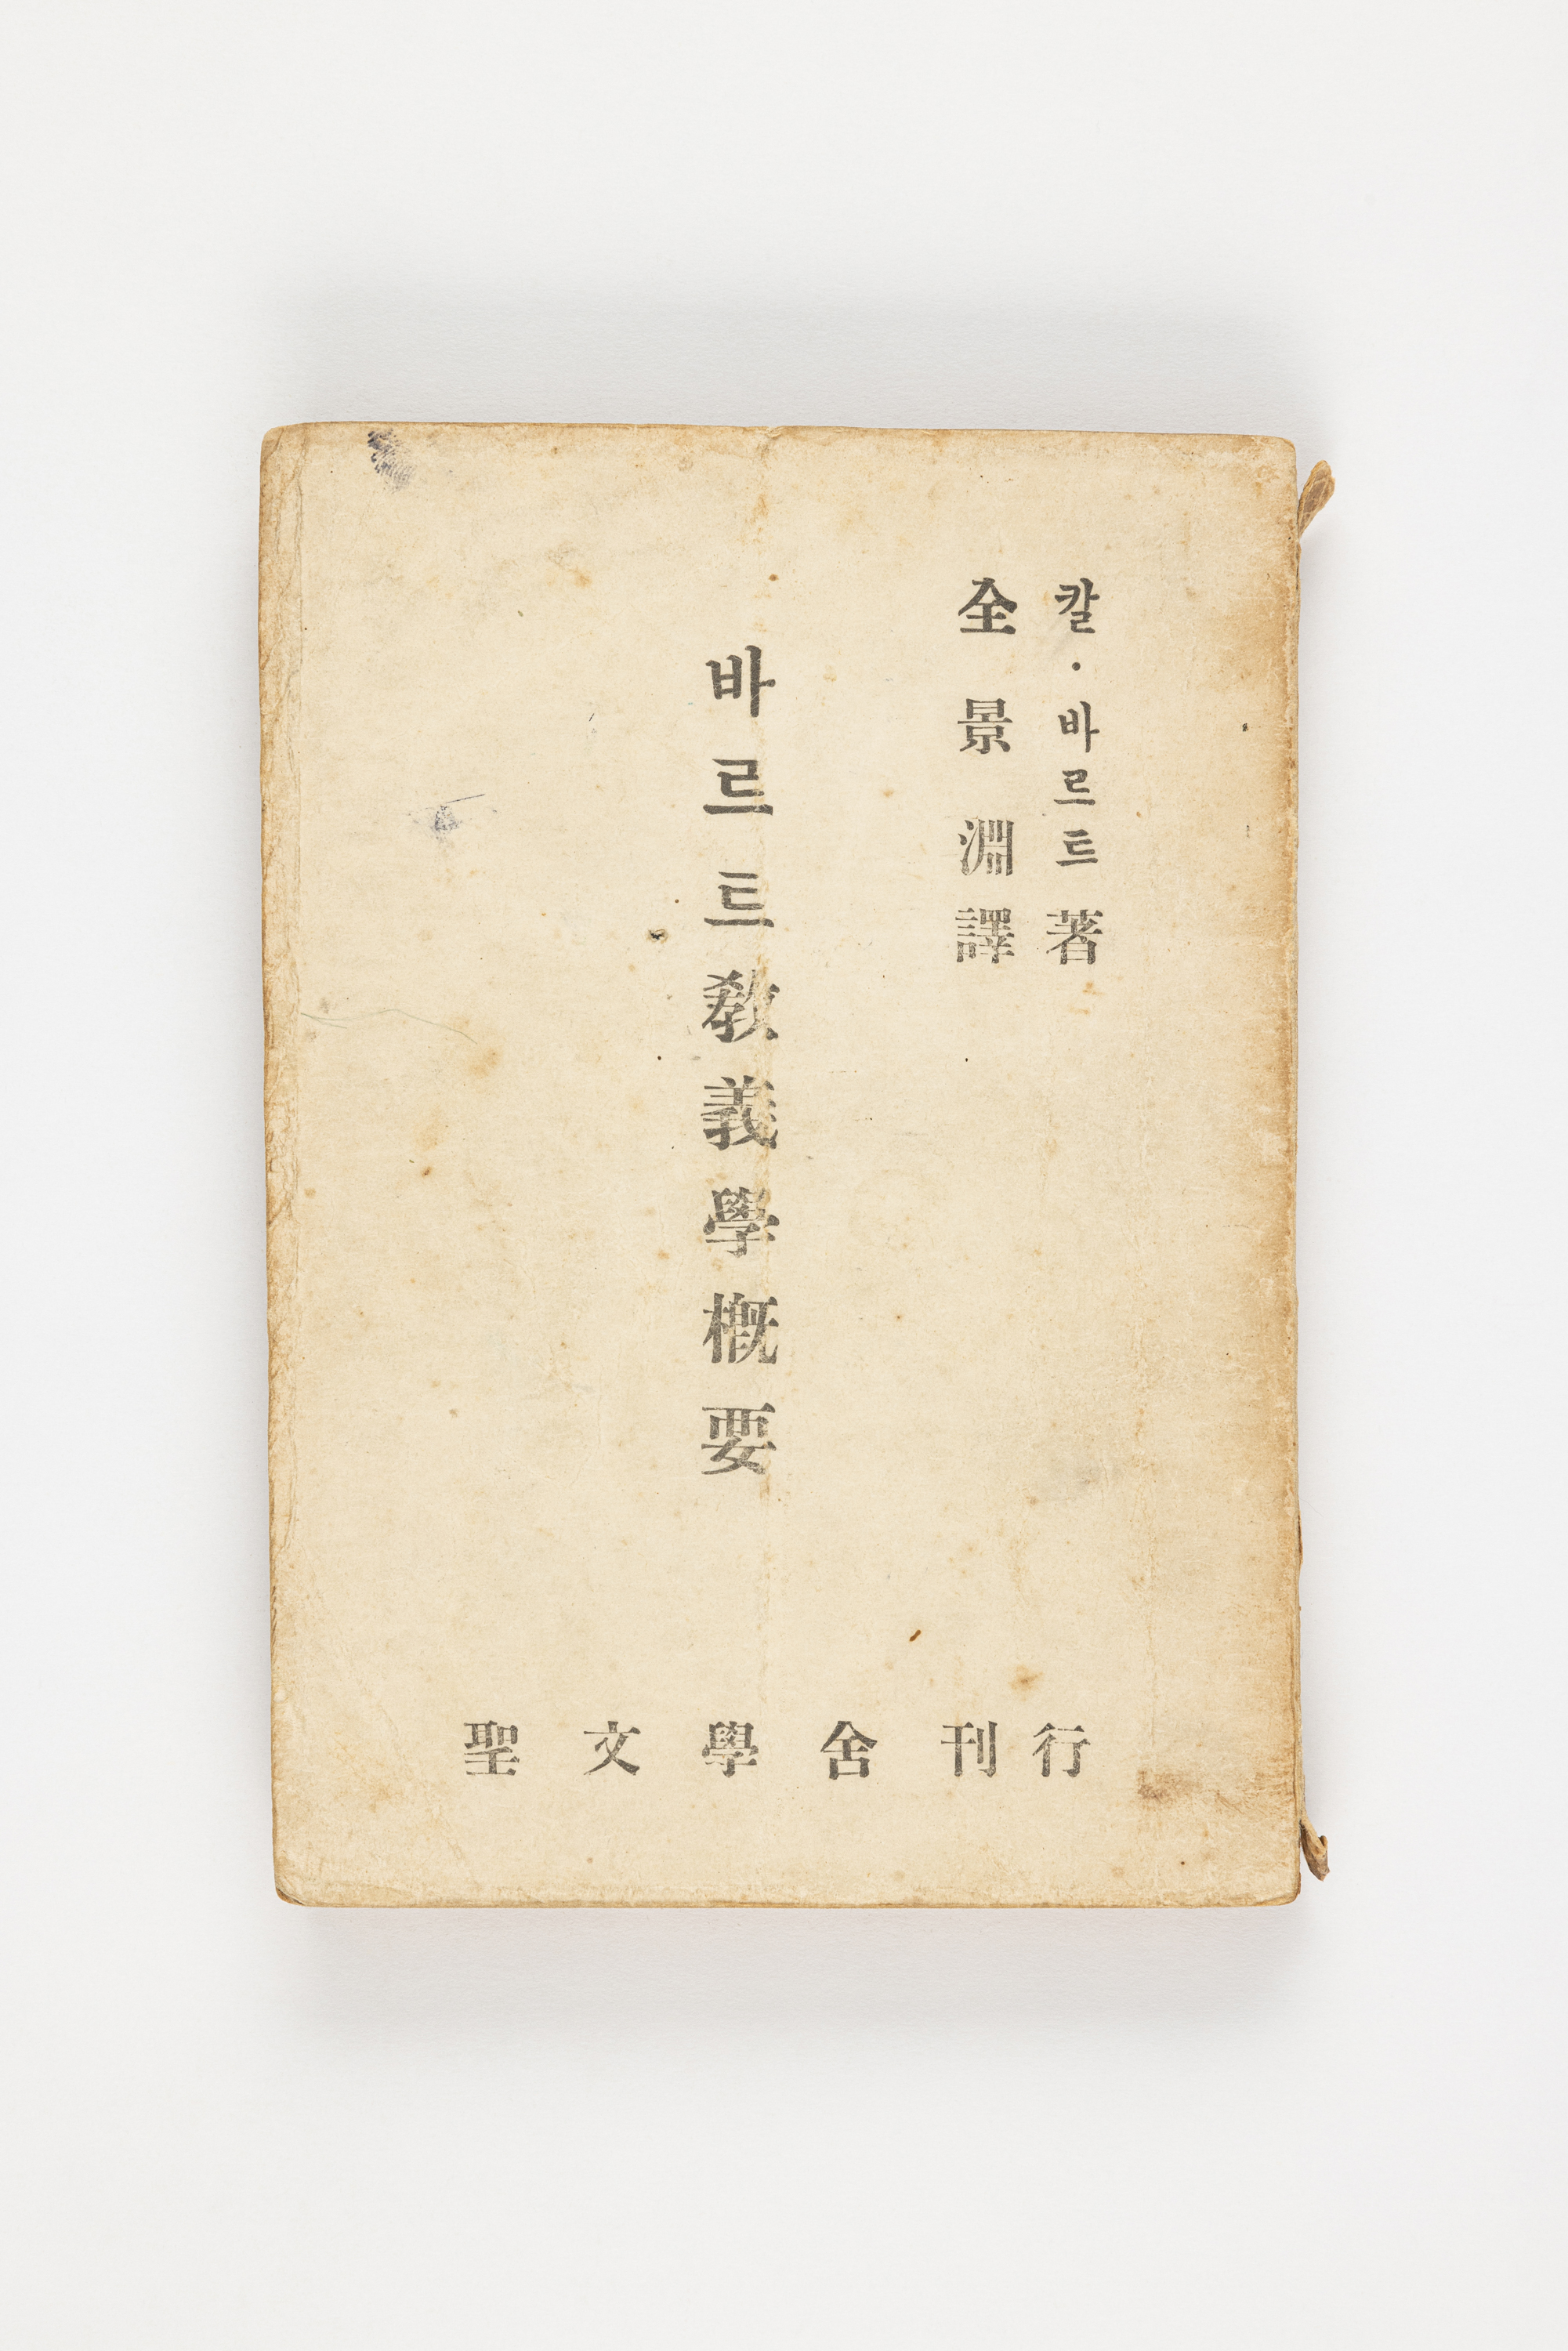 칼·바르트 著
全景淵 譯
바르트 敎義學槪要
聖文學舍 刊行